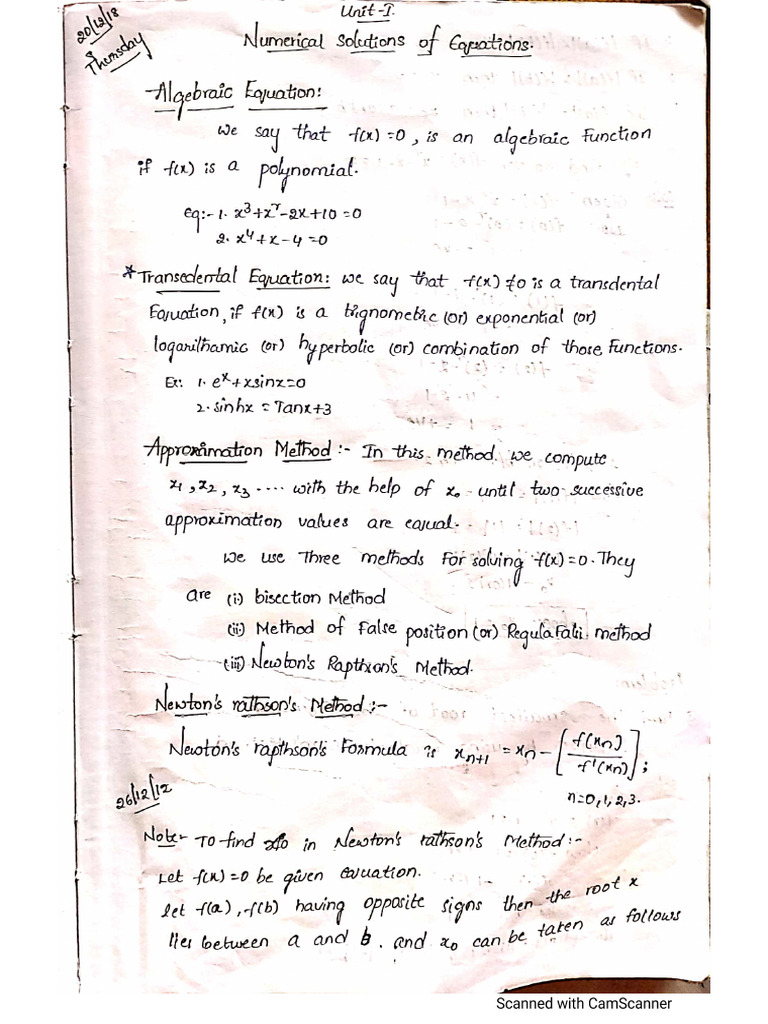 Unit-I.
20/12/18
Thursday
Numerical Solutions of Equations.
Algebraic Equation:
we say that f(x)=0, is an algebraic function
if f(x) is a polynomial.
eg:- 1. x³+x²-2x+10=0
2. x⁴+x-4=0
*Transedental Equation: we say that f(x) ≠0 is a transdental
Equation, if f(x) is a trignometric (or) exponential (or)
logarithamic (or) hyperbolic (or) combination of those functions.
Ex: 1. eˣ+xsinx=0
2. sinhx = Tanx+3
Approximation Method:- In this method we compute
x₁, x₂, x₃ .... with the help of x₀ until two successive
approximation values are equal.
we use Three methods for solving f(x)=0. They
are (i) bisection Method
(ii) Method of False position (or) Regula Falii method
(iii) Newton's Rapthson's Method.
Newton's rathson's Method:-
Newton's rapthson's Formula is xₙ₊₁ = xₙ - [f(xₙ)/f'(xₙ)];
n=0,1,2,3.
26/12/12
Note:- To find x₀ in Newton's rathson's Method:-
Let f(x)=0 be given equation.
let f(a), f(b) having opposite signs then the root x
lies between a and b. and x₀ can be taken as follows
Scanned with CamScanner